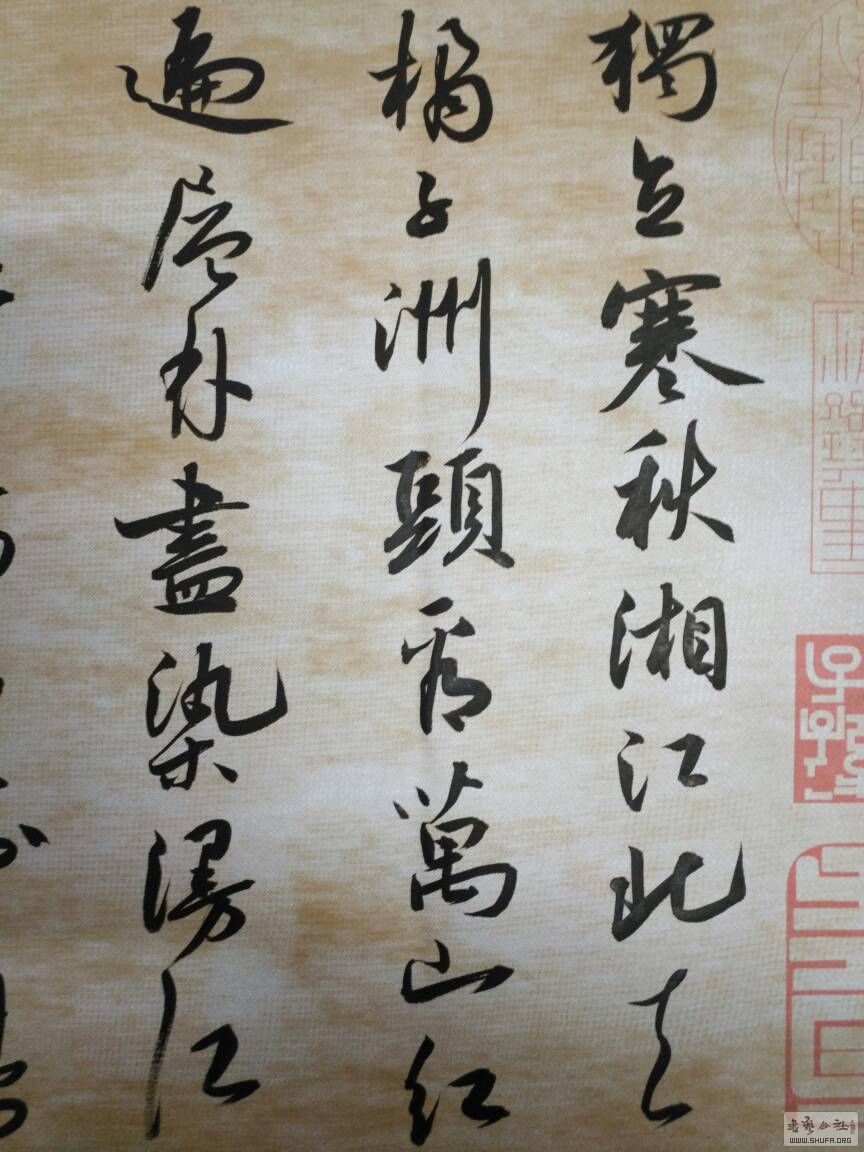 獨立寒秋湘江北去
橘子洲頭看萬山紅
遍層林盡染漫江
书艺公社
WWW.SHUFA.ORG